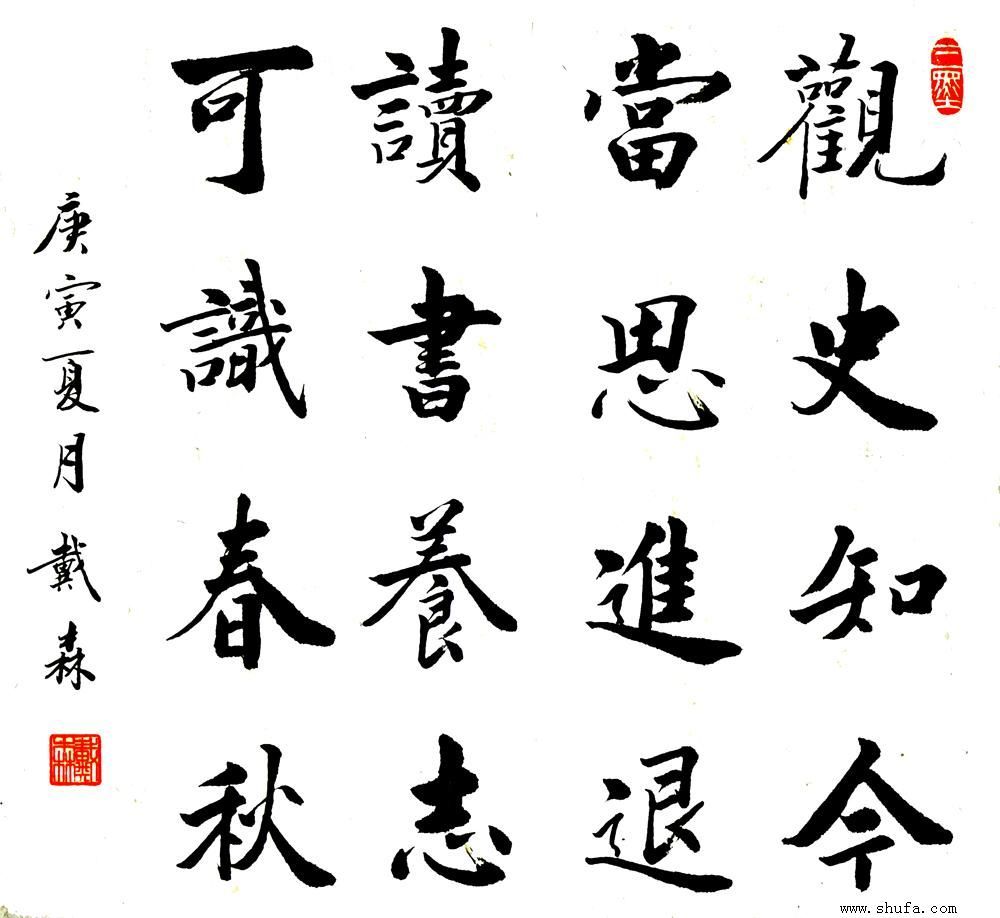 觀史知今
當思進退
讀書養志
可識春秋
庚寅夏月戴森
戴森
www.shufa.com